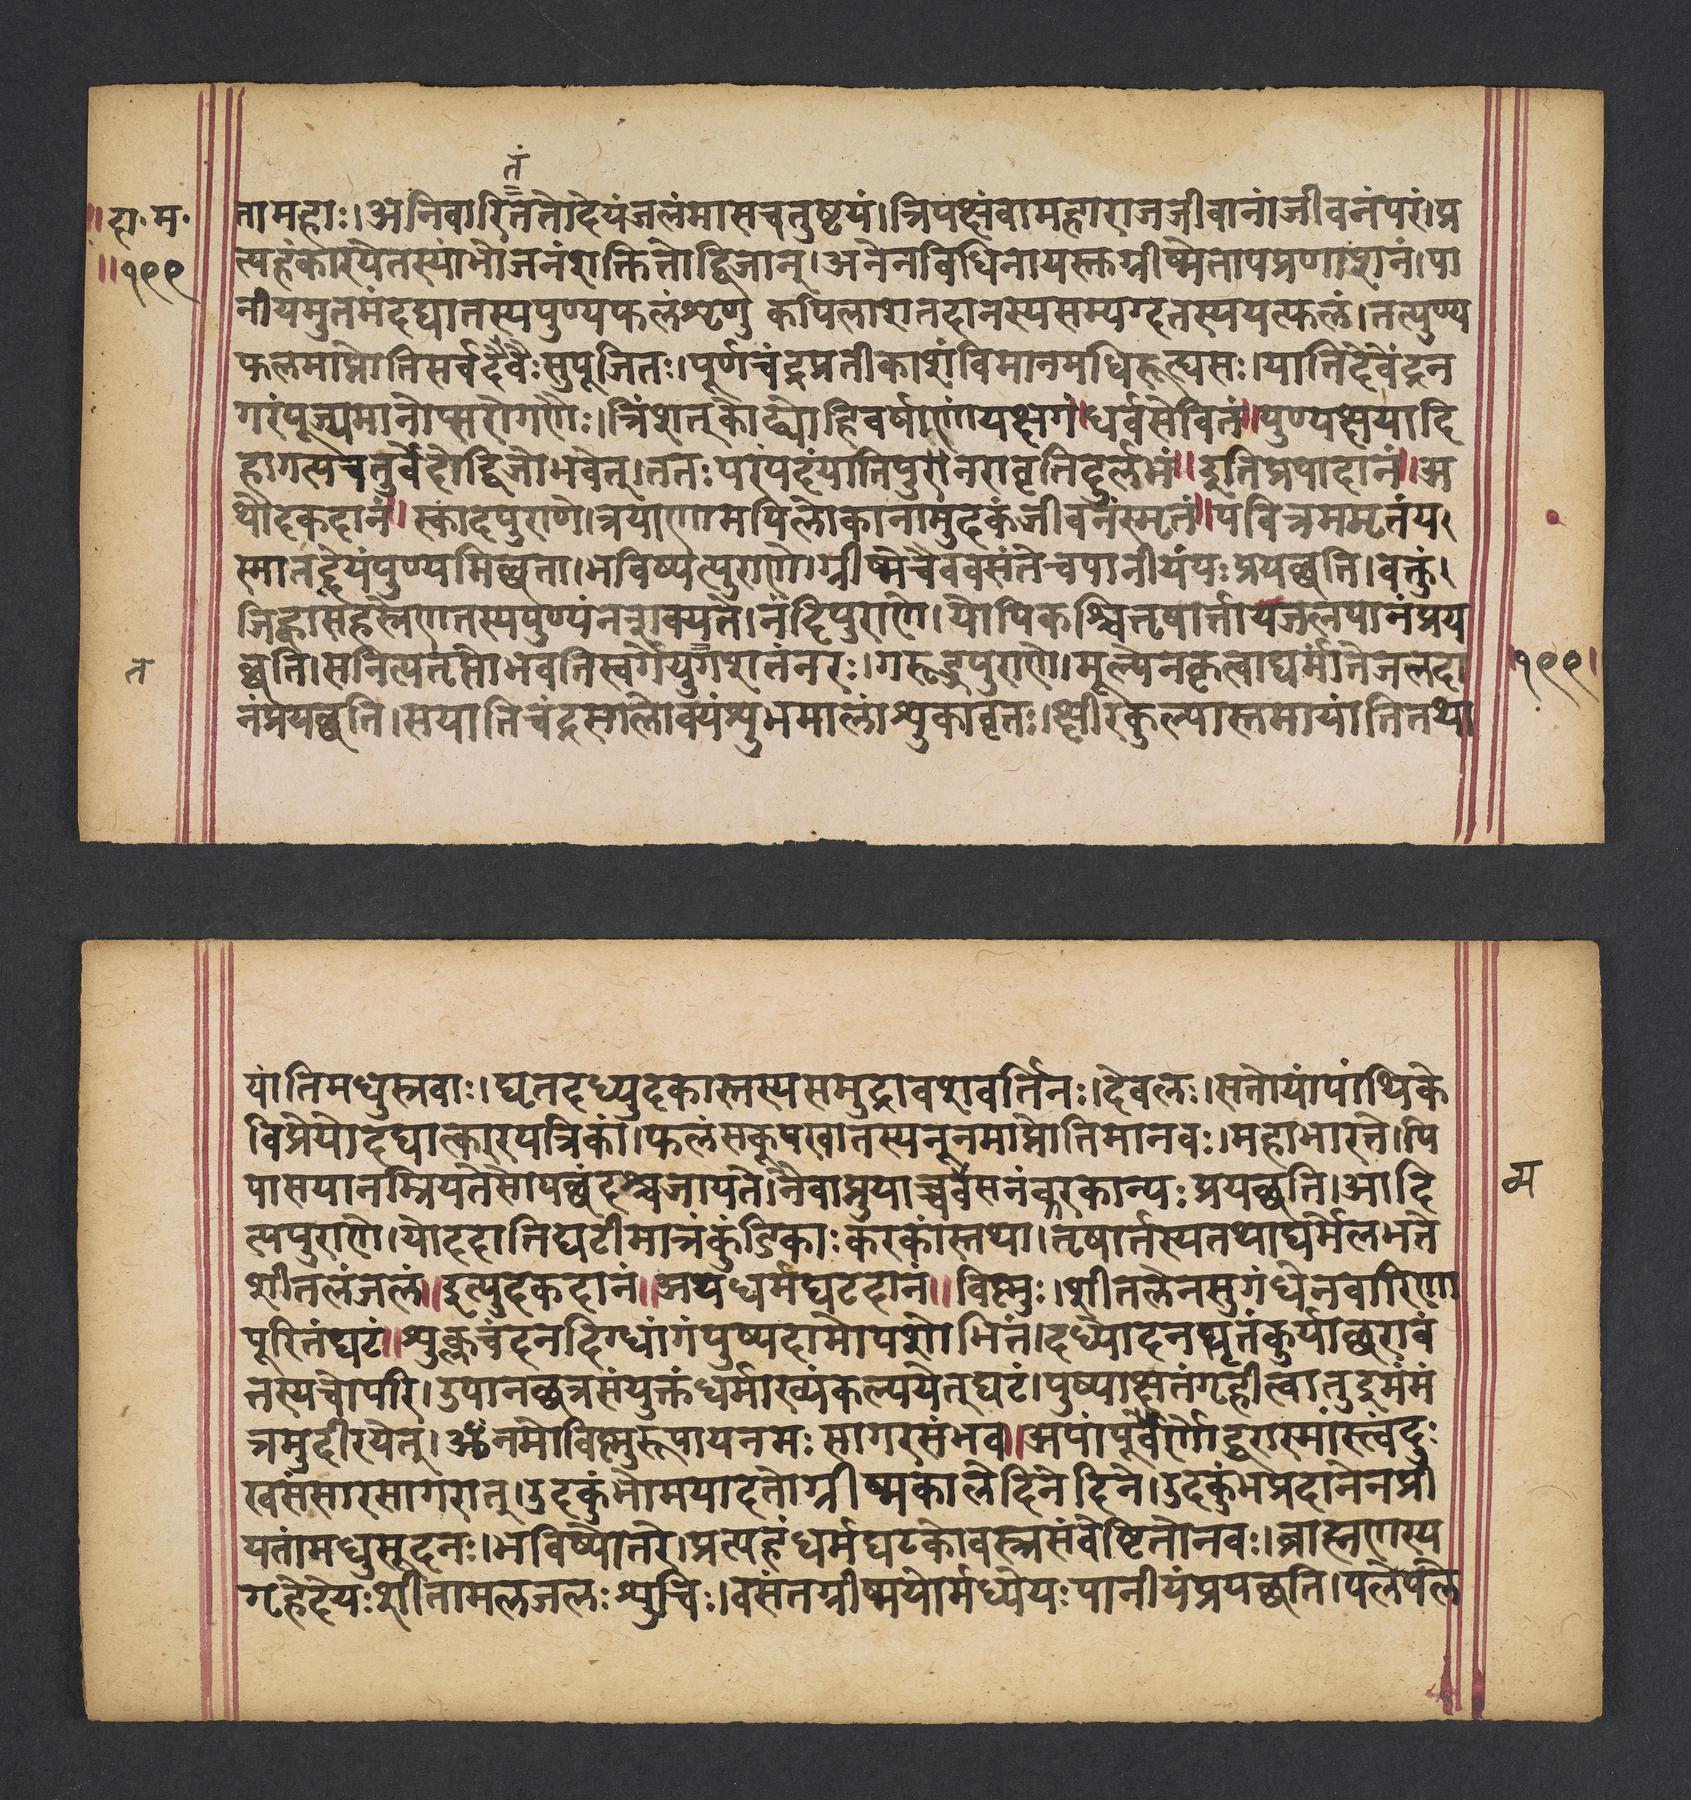 तं
॥दा.म.
॥१९९
तामहाः।अनिवारितंततोदेयंजलंमासचतुष्टयं।त्रिपक्षंवामहाराजजीवानांजीवनंपरं।प्र
त्यहंकारयेतस्यांभोजनंशक्तितोद्विजान्।अनेनविधिनायस्तुग्रीष्मेतापप्रणाशनं।पा
नीयमुत्तमंदद्यातस्यपुण्यफलंशृणु कपिलाशतदानस्यसम्यग्दतस्ययत्फलं।तत्पुण्य
फलमाप्नोतिसर्वदेवैःसुपूजितः।पूर्णचंद्रप्रतीकाशंविमानमधिरूह्यसः।यातिदेवेंद्रन
गरंपूज्यमानोप्सरोगणैः।त्रिंशत्कोट्योहिवर्षाणांयक्षगंधर्वसेवितं॥पुण्यक्षयादि
हागत्यचतुर्वेदोद्विजोभवेत्।ततःपरंपदंयातिपुरोनरावृतिदुर्लभं॥इतिप्रपादानं॥अ
थोदकदानं॥स्कांदपुराणे।त्रयाणामपिलोकानामुदकंजीवनंस्मृतं॥पवित्रममृतंय
स्मातद्देयंपुण्यमिछता।भविष्यत्पुराणे।ग्रीष्मेचैववसंतेचपानीयंयःप्रयछति।वक्तुं
जिह्वासहस्रेणतस्यपुण्यंनशक्यते।नंदिपुराणे।योपिकश्चित्तृषार्त्तायजलपानंप्रय
त
छति।सनित्यतृप्तोभवतिस्वर्गेयुगशतंनरः।गरूडपुराणे।मूल्येनकृत्वाघर्मांतेजलदा
१९९।
नंप्रयछति।सयातिचंद्रसालोक्यंश्युभमालांश्युकावृतः।क्षीरकुल्यास्तमायांतितथा
यांतिमधुस्रवाः।घृतदध्युदकास्तस्यसमुद्रावशवर्तिनः।देवलः।सतोयांपांथिके
विप्रेयोदद्यात्कारयत्रिकां।फलंसकूपखातस्यनूनमाप्नोतिमानवः।महाभारते।पि
पासयानम्रियतेसोपछंदश्चजायते।नैवाप्नुयाच्चवेसनंकरकान्यःप्रयछति।आदि
व्य
त्यपुराणे।योददातिघटीमात्रंकुंडिकाःकरकांस्तथा।तृषार्तस्यतथाघर्मेलभते
शीतलंजलं॥इत्युदकदानं॥अथधर्मघटदानं॥विष्णुः।शीतलेनसुगंधेनवारिणा
पूरितंघटं॥श्युक्लचंदनदिग्धांगंपुष्पदामोपशोभितं।दध्योदनघृतंकुर्याछरावं
तस्यचोपरि।उपानछत्रसंयुक्तंधर्माख्यंकल्पयेत्घटं।पुष्पाक्षतंगृहीत्वातुइमंमं
त्रमुदीरयेत्।ॐनमोविष्णुरूपायनमःसागरसंभव॥अपांपूर्णोद्धरास्मांस्त्वंदुः
खसंसारसागरात्।उदकुंभोमयादतोग्रीष्मकालेदिनेदिने।उदकुंभप्रदानेनप्री
यतांमधुसूदनः।भविष्योतरे।प्रत्यहंधर्मघटकोवस्त्रसंवेष्टितोनवः।ब्राह्मणस्य
गृहेदेयःशीतामलजलःश्युचिः।वसंतग्रीष्मयोर्मध्येयःपानीयंप्रयछति।पलेपले